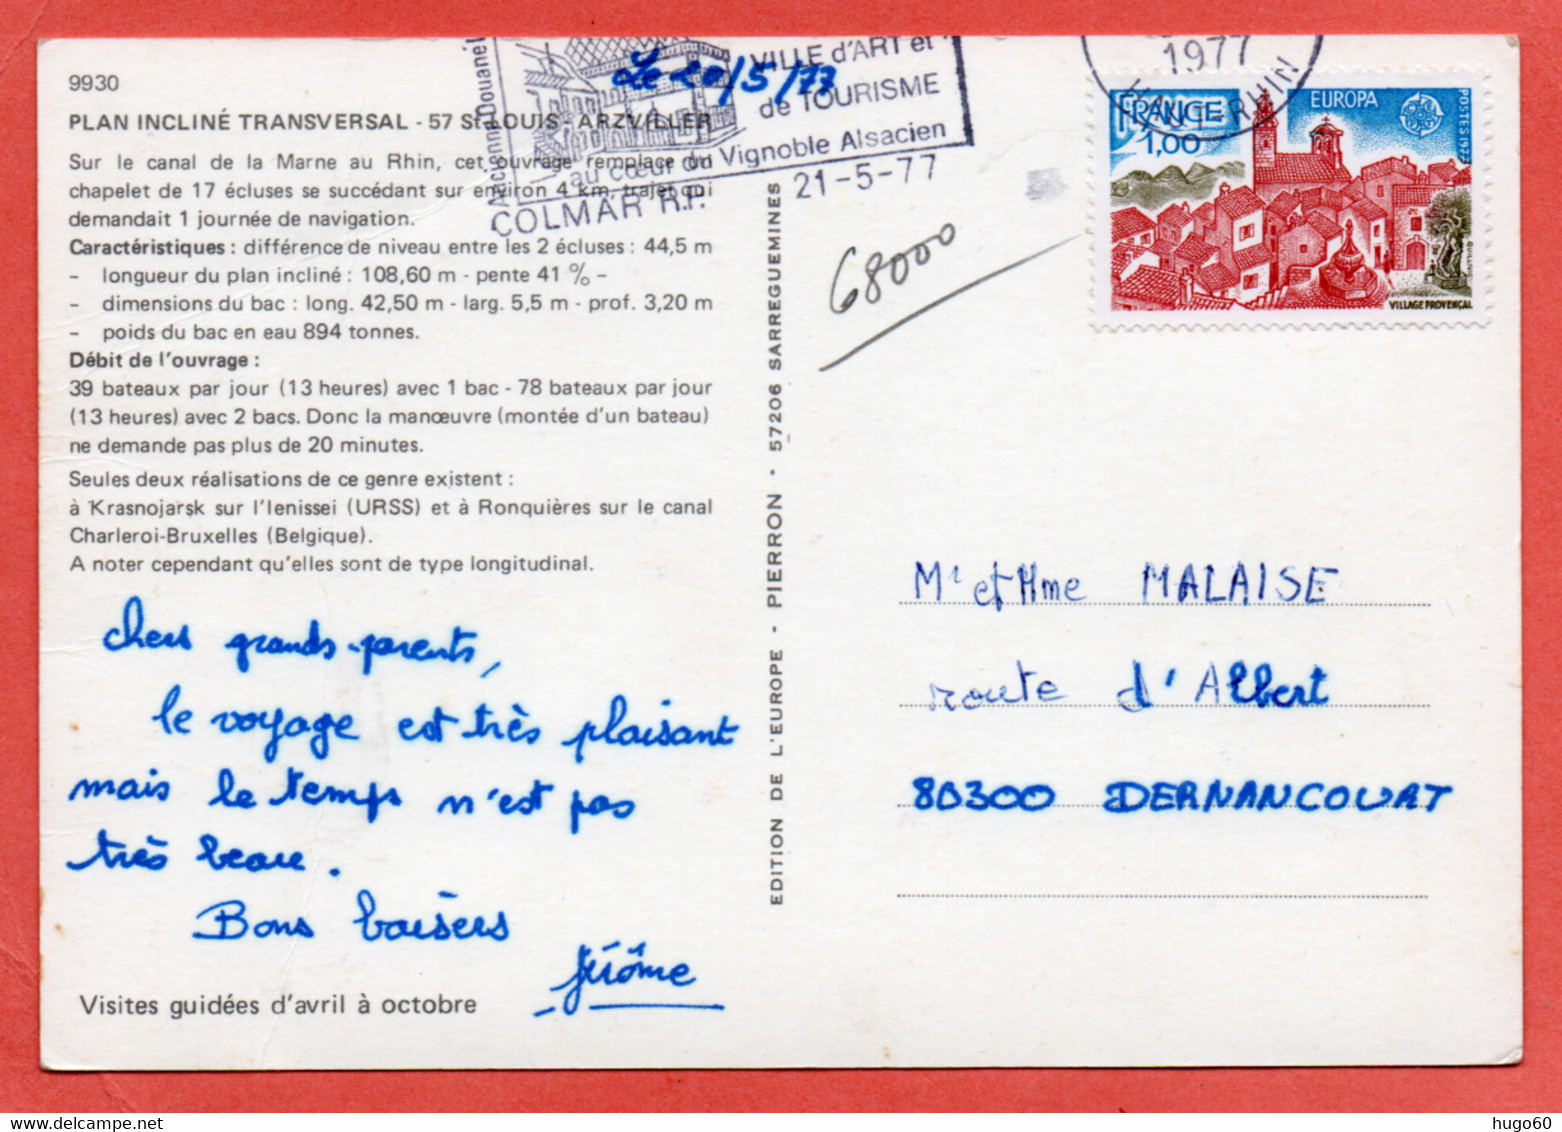 9930
PLAN INCLINÉ TRANSVERSAL - 57 St LOUIS - ARZVILLER
Sur le canal de la Marne au Rhin, cet ouvrage remplace un
chapelet de 17 écluses se succédant sur environ 4 km, trajet qui
demandait 1 journée de navigation.
Caractéristiques : différence de niveau entre les 2 écluses : 44,5 m
- longueur du plan incliné : 108,60 m - pente 41 % -
- dimensions du bac : long. 42,50 m - larg. 5,5 m - prof. 3,20 m
- poids du bac en eau 894 tonnes.
Débit de l'ouvrage :
39 bateaux par jour (13 heures) avec 1 bac - 78 bateaux par jour
(13 heures) avec 2 bacs. Donc la manœuvre (montée d'un bateau)
ne demande pas plus de 20 minutes.
Seules deux réalisations de ce genre existent :
à Krasnojarsk sur l'Ienissei (URSS) et à Ronquières sur le canal
Charleroi-Bruxelles (Belgique).
A noter cependant qu'elles sont de type longitudinal.
Le 20/5/77
chers grands-parents,
le voyage est très plaisant
mais le temps n'est pas
très beau.
Bons baisers
Jérôme
Visites guidées d'avril à octobre
EDITION DE L'EUROPE - PIERRON - 57206 SARREGUEMINES
Ancienne Douane
VILLE d'ART et
de TOURISME
au Cœur du Vignoble Alsacien
COLMAR R.P.
21-5-77
1977
HAUT RHIN
FRANCE
1,00
EUROPA
POSTES 1977
VILLAGE PROVENÇAL
68000
Mr et Mme MALAISE
route d'Albert
80300 DERNANCOURT
hugo60